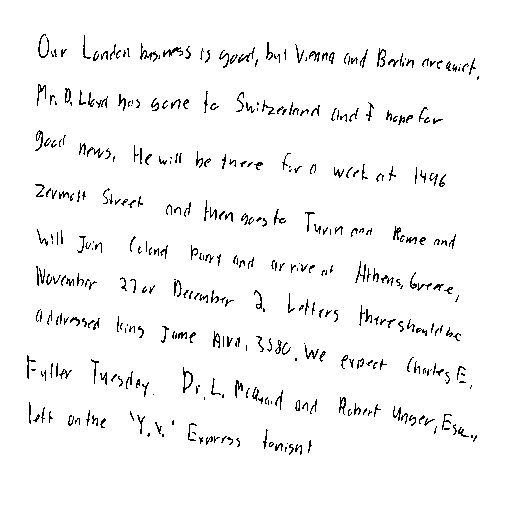 Our London business is good, but Vienna and Berlin are quiet.
Mr. D. Lloyd has gone to Switzerland and I hope for
good news. He will be there for a week at 1496
Zermott Street and then goes to Turin and Rome and
will join Colond Parry and arrive at Athens, Greece,
November 27 or December 2. Letters there should be
addressed King Jame Blvd. 3580. We expect Charles E.
Fuller Tuesday. Dr. L. McQuaid and Robert Unger, Esq.,
left on the 'Y.X.' Express tonight